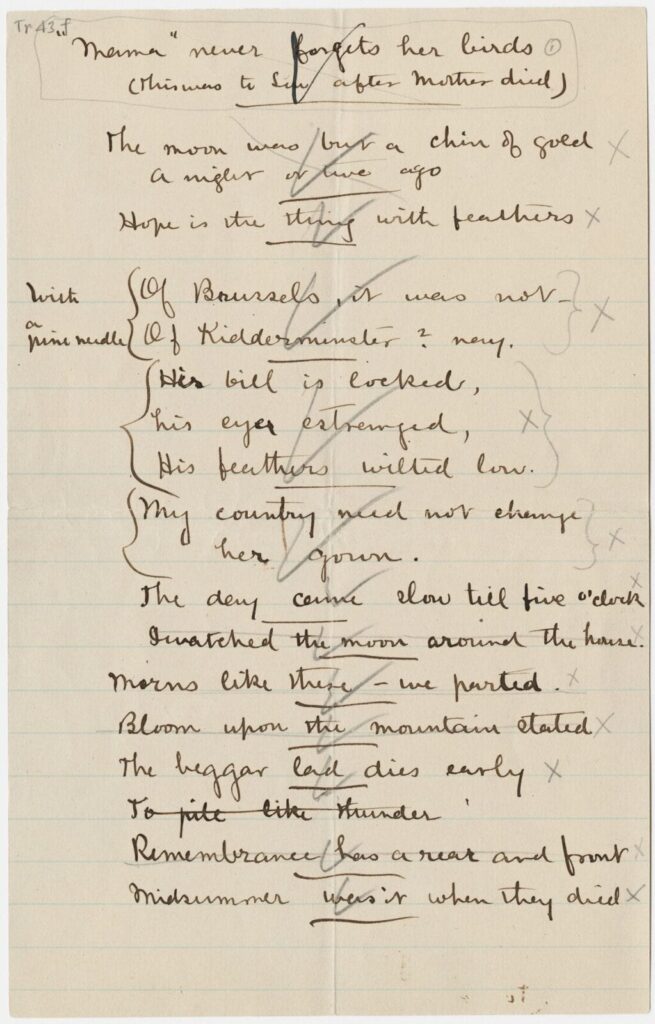 Tr 43 f
"Mama" never forgets her birds ①
(This was to Sue after Mother died)
The moon was but a chin of gold
A night or two ago
Hope is the thing with feathers
With
a
pine needle
Of Brussels, it was not –
Of Kidderminster? nay.
His bill is locked,
his eyes estranged,
His feathers wilted low.
My country need not change
her gown.
The day came slow till five o'clock
I watched the moon around the house.
Morns like these – we parted.
Bloom upon the mountain stated
The beggar lad dies early
To pile like thunder
Remembrance has a rear and front
Midsummer was it when they died